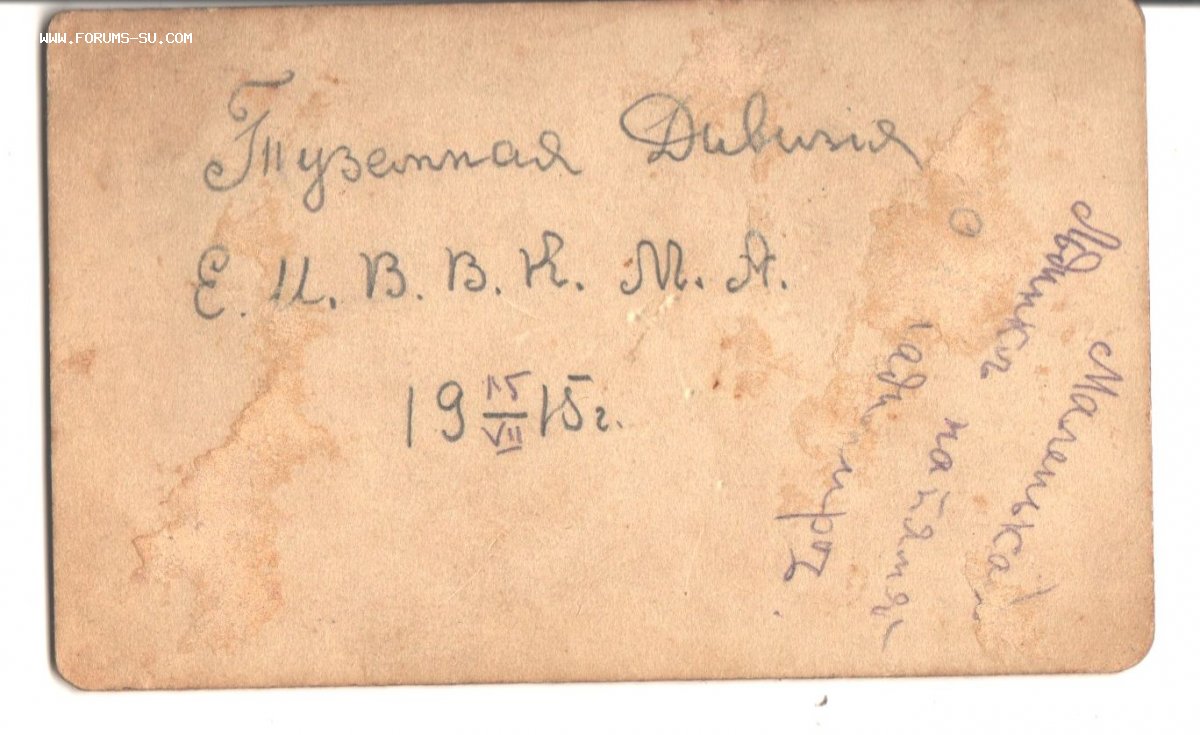 WWW.FORUMS-SU.COM
Туземная Дивизия
Е. И. В. В. К. М. А.
19 15/VII 15 г.
Маленькая
на память